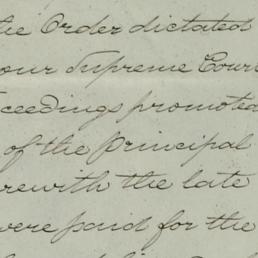 the Order dictated
our Supreme Cour
ceedings promoted
of the Principal
rewith the late
were paid for the